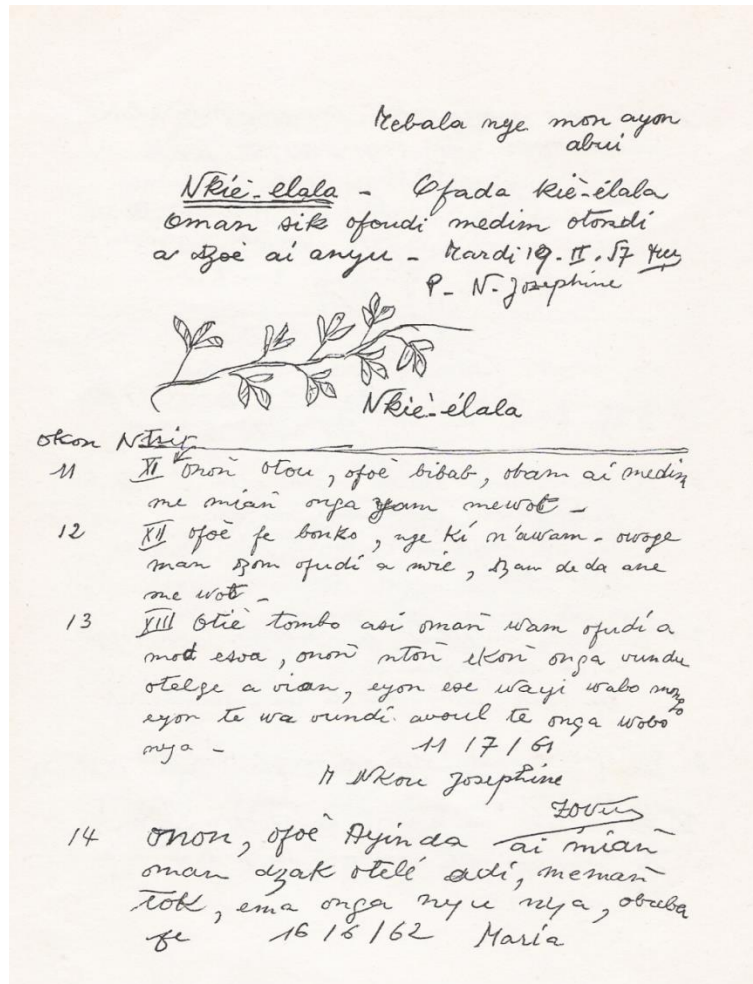 Mebala nge mon ayon
abui
Nkiè-elala - Ofada kiè-élala
oman sik ofoudi medim otondi
a dzoè ai anyu - Mardi 19. II. 57
P. N. Josephine
Nkiè-élala
okon Ntsir
11 XI onoñ otou, ofoè bibab, obam ai medim
me miañ onga yam mewot -
12 XII ofoè fe bonko, nge ki n'awam - owoge
man dzom ofudi a mvie, dzam deda ane
me wot -
13 XIII Otiè tombo asi omañ wam ofudi a
mod esoa, onoñ ntoñ ekoñ onga vundu
otelge a vian, eyon ese wayi wabo
eyon te wa vundi avoul te onga wobo
nya - 11/7/61
M Nkou Josephine
14 onon, ofoè Ayinda ai miañ
oman dzak otelé adi, memañ
tok, ema onga nyu nya, obuba
fe 16/6/62 Maria